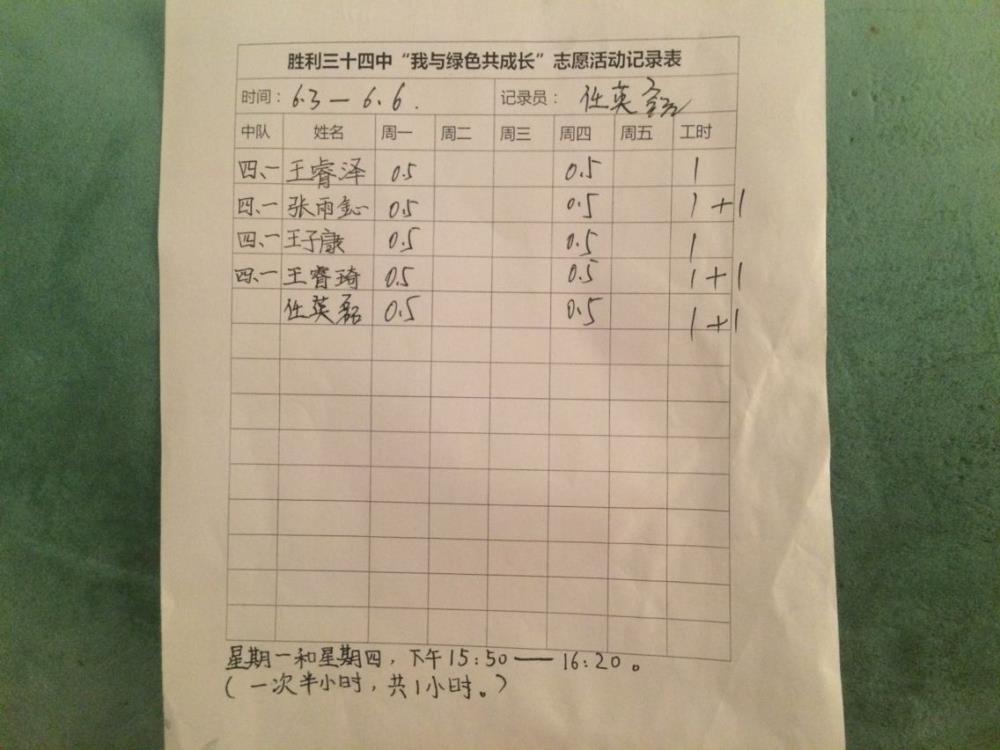 胜利三十四中“我与绿色共成长”志愿活动记录表
时间：6.3 — 6.6. 记录员：任英磊
中队 姓名 周一 周二 周三 周四 周五 工时
四、一 王睿泽 0.5 0.5 1
四、一 张雨 0.5 0.5 1+1
四、一 王子康 0.5 0.5 1
四、一 王睿琦 0.5 0.5 1+1
任英磊 0.5 0.5 1+1
星期一和星期四，下午15:50 — 16:20。
（一次半小时，共1小时。）